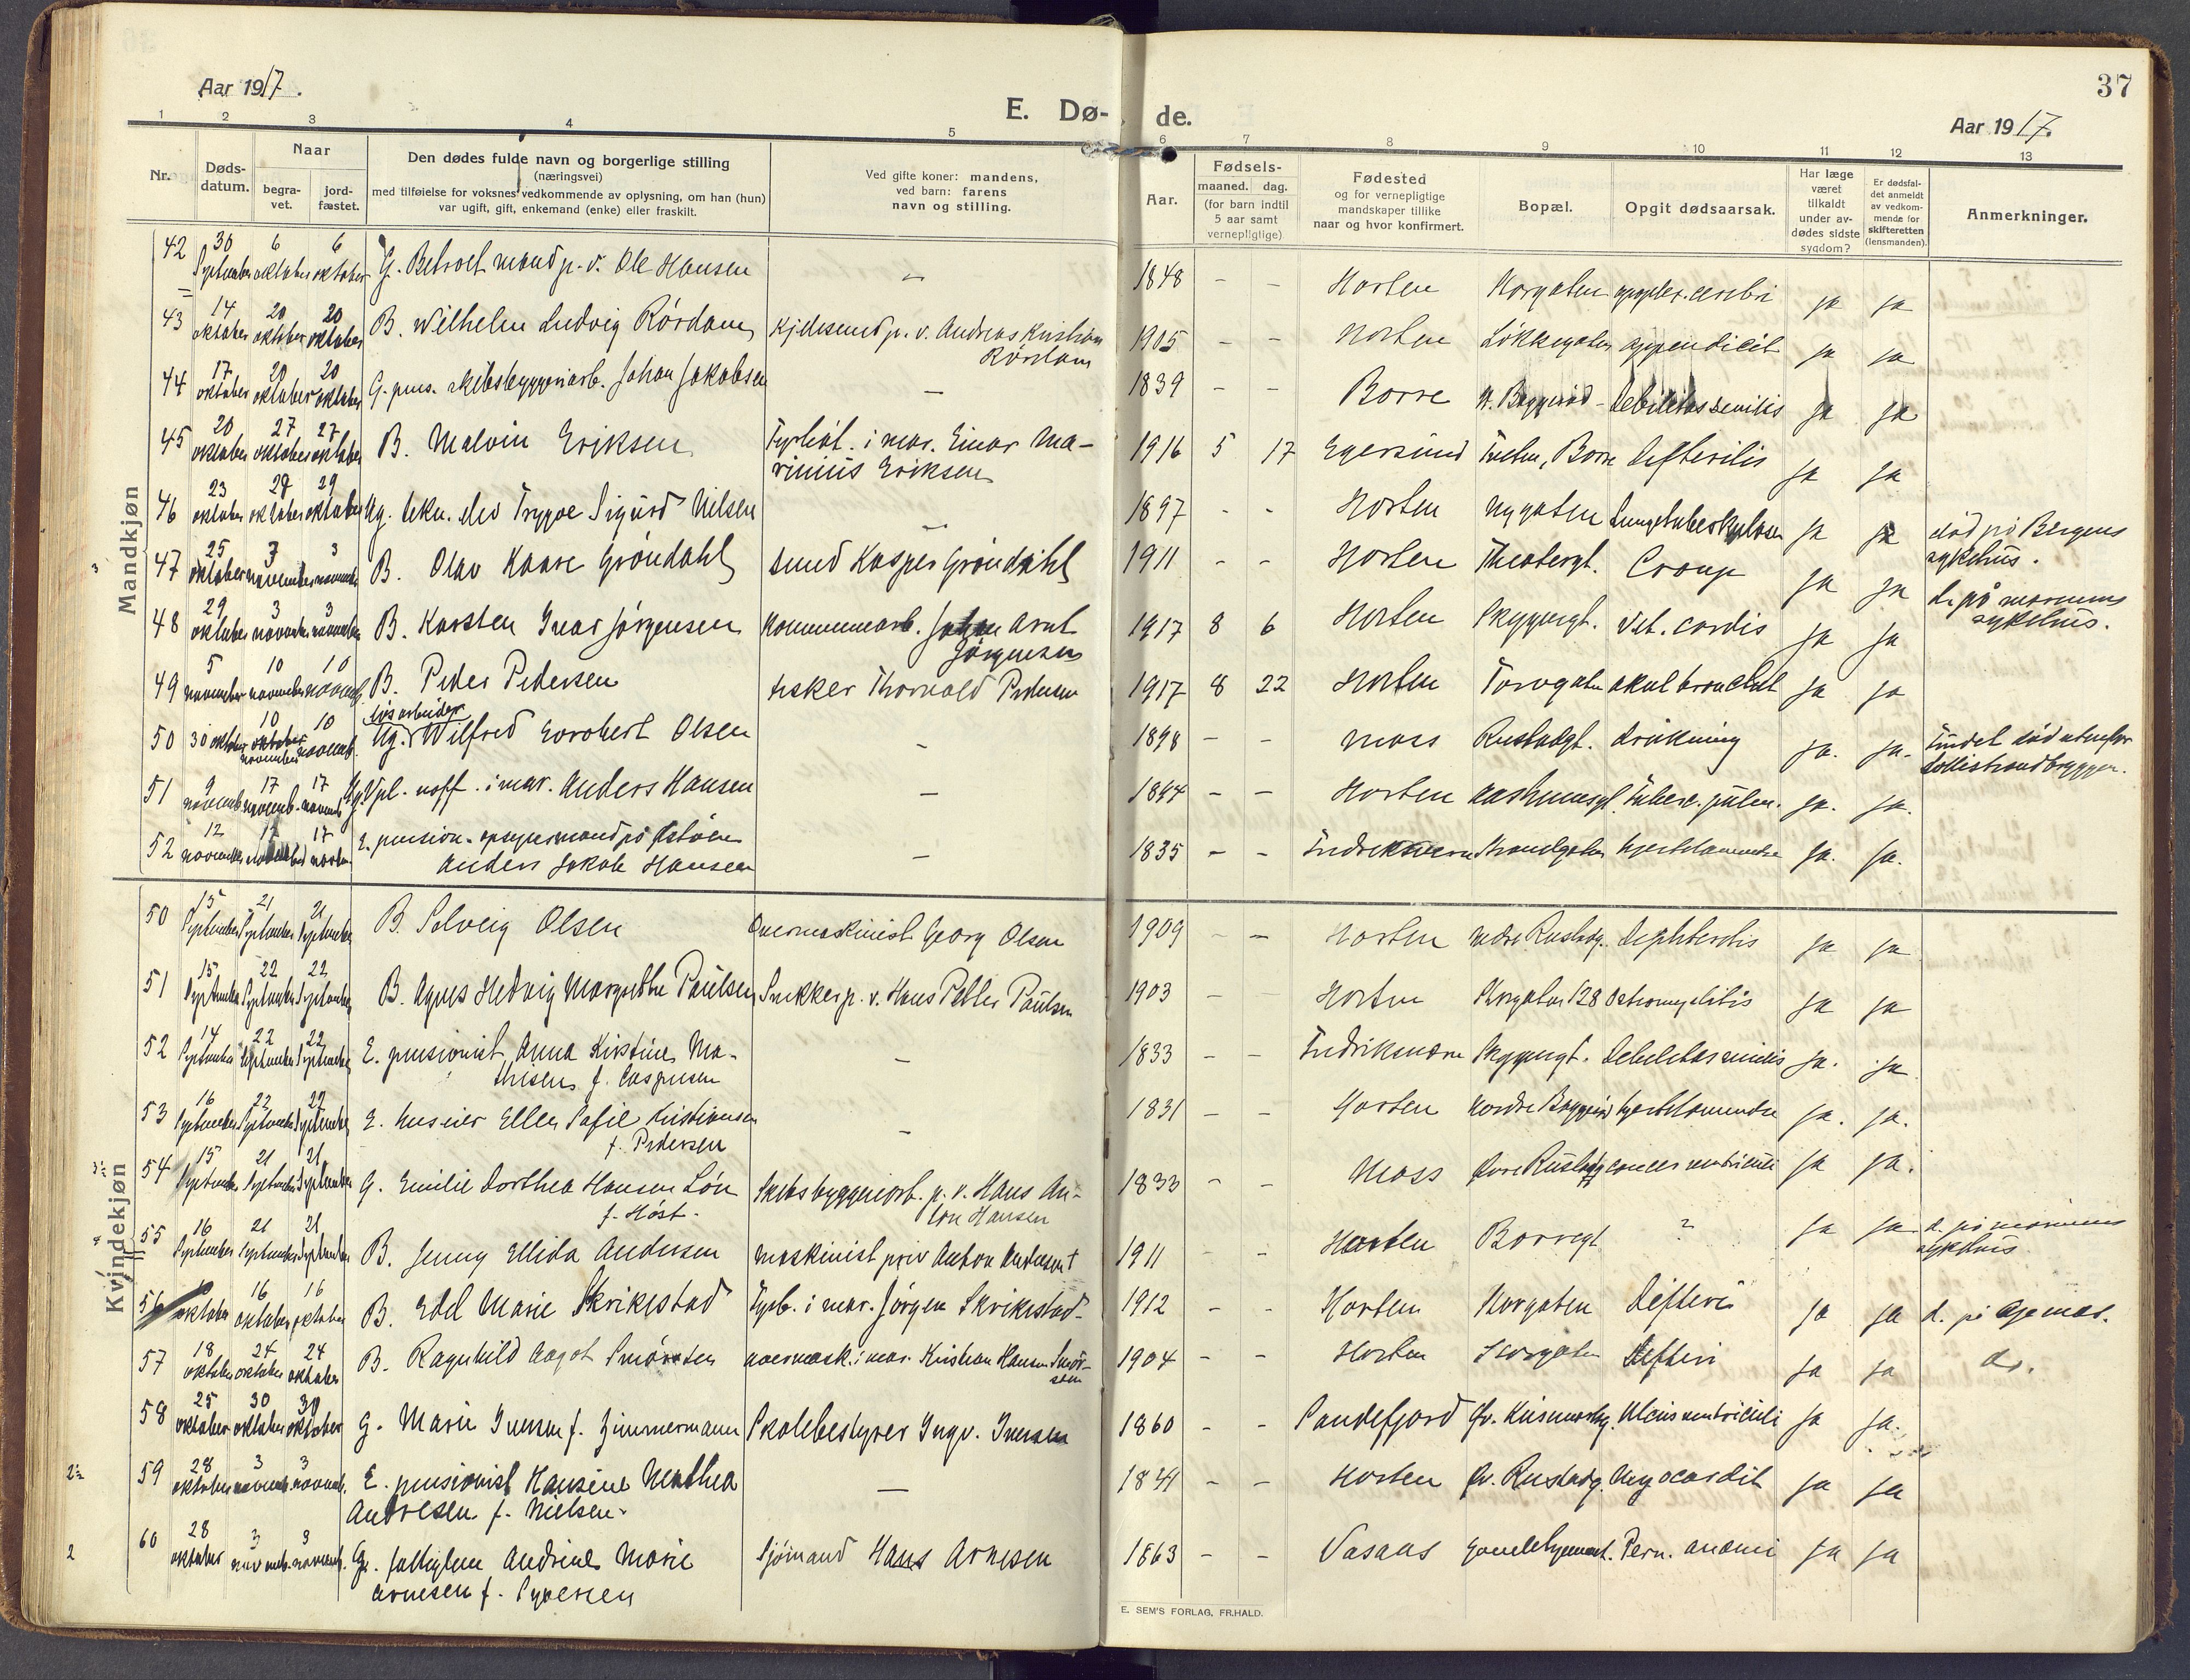 Aar 1917.
E. Dø-
de.
Aar 1917.
37
1 2 3 4 5 6 7 8 9 10 11 12 13
Nr.
Døds-
datum.
Naar
begra-
vet.
jord-
fæstet.
Den dødes fulde navn og borgerlige stilling
(næringsvei)
med tilføielse for voksnes vedkommende av oplysning, om han (hun)
var ugift, gift, enkemand (enke) eller fraskilt.
Ved gifte koner: mandens,
ved barn: farens
navn og stilling.
Aar.
Fødsels-
maaned. dag.
(for barn indtil
5 aar samt
vernepligtige)
Fødested
og for vernepligtige
mandskaper tillike
naar og hvor konfirmert.
Bopæl.
Opgit dødsaarsak.
Har læge
været
tilkaldt
under av-
dødes sidste
sygdom?
Er dødsfal-
det anmeldt
av vedkom-
mende for
skifteretten
(lensmanden).
Anmerkninger.
Mandkjøn
42 30 September 6 oktober 6 oktober G. mand p. v. Ole Hansen - 1848 - - Horten Storgaten cerebri ja ja
43 14 oktober 20 oktober 20 oktober B. Wilhelm Ludvig Rördam Kjelesmed p. v. Andreas Kristian
Rördam 1905 - - Horten Løkkegaten appendicit ja ja
44 17 oktober 20 oktober 20 oktober G. pens. skibsbyggeriarb. Johan Jakobsen - 1839 - - Borre N. Baggerød Debilitas senilis ja ja
45 20 oktober 27 oktober 27 oktober B. Malvin Eriksen i mar. Einar Ma-
rinius Eriksen 1916 5 17 Egersund Borre Difteritis ja ja
46 23 oktober 29 oktober 29 oktober Ug. elev Trygve Sigurd Nilsen - 1897 - - Horten Nygaten Lungetuberkulose ja ja död på Bergens
sykehus.
47 25 oktober 3 november 3 november B. Olav Kaare Gröndahl smed Kasper Gröndahl 1911 - - Horten Theatergt. Croup ja ja d. på marinens
sykehus.
48 29 oktober 3 november 3 november B. Karsten Ivar Jörgensen Kommunearb. Johan Arnt
Jörgensen 1917 8 6 Horten Skyggengt. Vit. cordis ja ja
49 5 november 10 november 10 novemb. B. Peder Pedersen fisker Thorvald Pedersen 1917 8 22 Horten Torvgaten akut bronchit ja ja
løsarbeider
50 30 oktober 10 oktober november 10 novemb. Ug. Wilfred Olsen - 1898 - - Moss Rustadgt. drukning ja. ja. Fundet død utenfor
51 9 novemb. 17 novemb. 17 novemb. Ug. Vpl. uoff. i mar. Anders Hansen - 1894 - - Horten Tuberc. pulm. ja. ja.
52 12 november 17 november 17 novbr. E. pension. opsynsmand på Østöen
Anders Jakob Hansen - 1835 - - Fredriksværn Strandgaten hjertelammelse ja. ja.
Kvindekjøn
50 15 September 21 September 21 September B. Solveig Olsen Overmaskinist Georg Olsen 1909 - - Horten Nedre Rustadg. diphteritis ja ja
51 15 September 22 September 22 September B. Agnes Hedvig Margrethe Paulsen Snekker p. v. Hans Petter Paulsen 1903 - - Horten Storgaten 128 Osteomyelitis ja ja
52 14 September 22 September 22 September E. pensionist Anna Kirstine Ma-
thisen f. Caspersen - 1833 - - Fredriksværn Skyggengt. Debilitas senilis ja. ja
53 16 September 22 September 22 September E. huseier Ellen Sofie Kristiansen
f. Pedersen - 1831 - - Horten Nordre Baggerød hjertelammelse ja. ja.
54 15 September 21 September 21 September G. Emilie Dorthea Hansen Lön
f. Höst. Skibsbyggeriarb. p. v. Hans An-
ton Hansen 1833 - - Moss Övre Rustadg cancer ventriculi ja ja.
55 16 September 21 September 21 September B. Jenny Ellida Andersen maskinist priv Anton Andersen † 1911 - - Horten Borregt ? ja ja d. på marinens
sykehus.
56 oktober 16 oktober 16 oktober B. Edel Marie Skrikestad Fyrb. i mar. Jörgen Skrikestad 1912 - - Horten Storgaten Difteri ja ja
57 18 oktober 24 oktober 24 oktober B. Ragnhild Aagot overmask. i mar. Kristian Hansen 1904 - - Horten Storgaten Difteri ja ja do.
58 25 oktober 30 oktober 30 oktober G. Marie Iversen f. Zimmermann Skolebestyrer Ingv. Iversen 1860 - - Sandefjord Ulcus ventriculi ja ja.
59 28 oktober 3 novemb. 3 novemb. E. pensionist Hansine Mathea
Andresen f. Nielsen. - 1841 - - Horten Øv. Rustadg. Myocardit ja ja
60 28 oktober 3 novemb. 3 novemb. G. Andrine Marie
Arnesen f. Syversen Sjömand Hans Arnesen 1863 - - Vasaas Pern. anæmi ja ja
E. SEM'S FORLAG, FR.HALD.